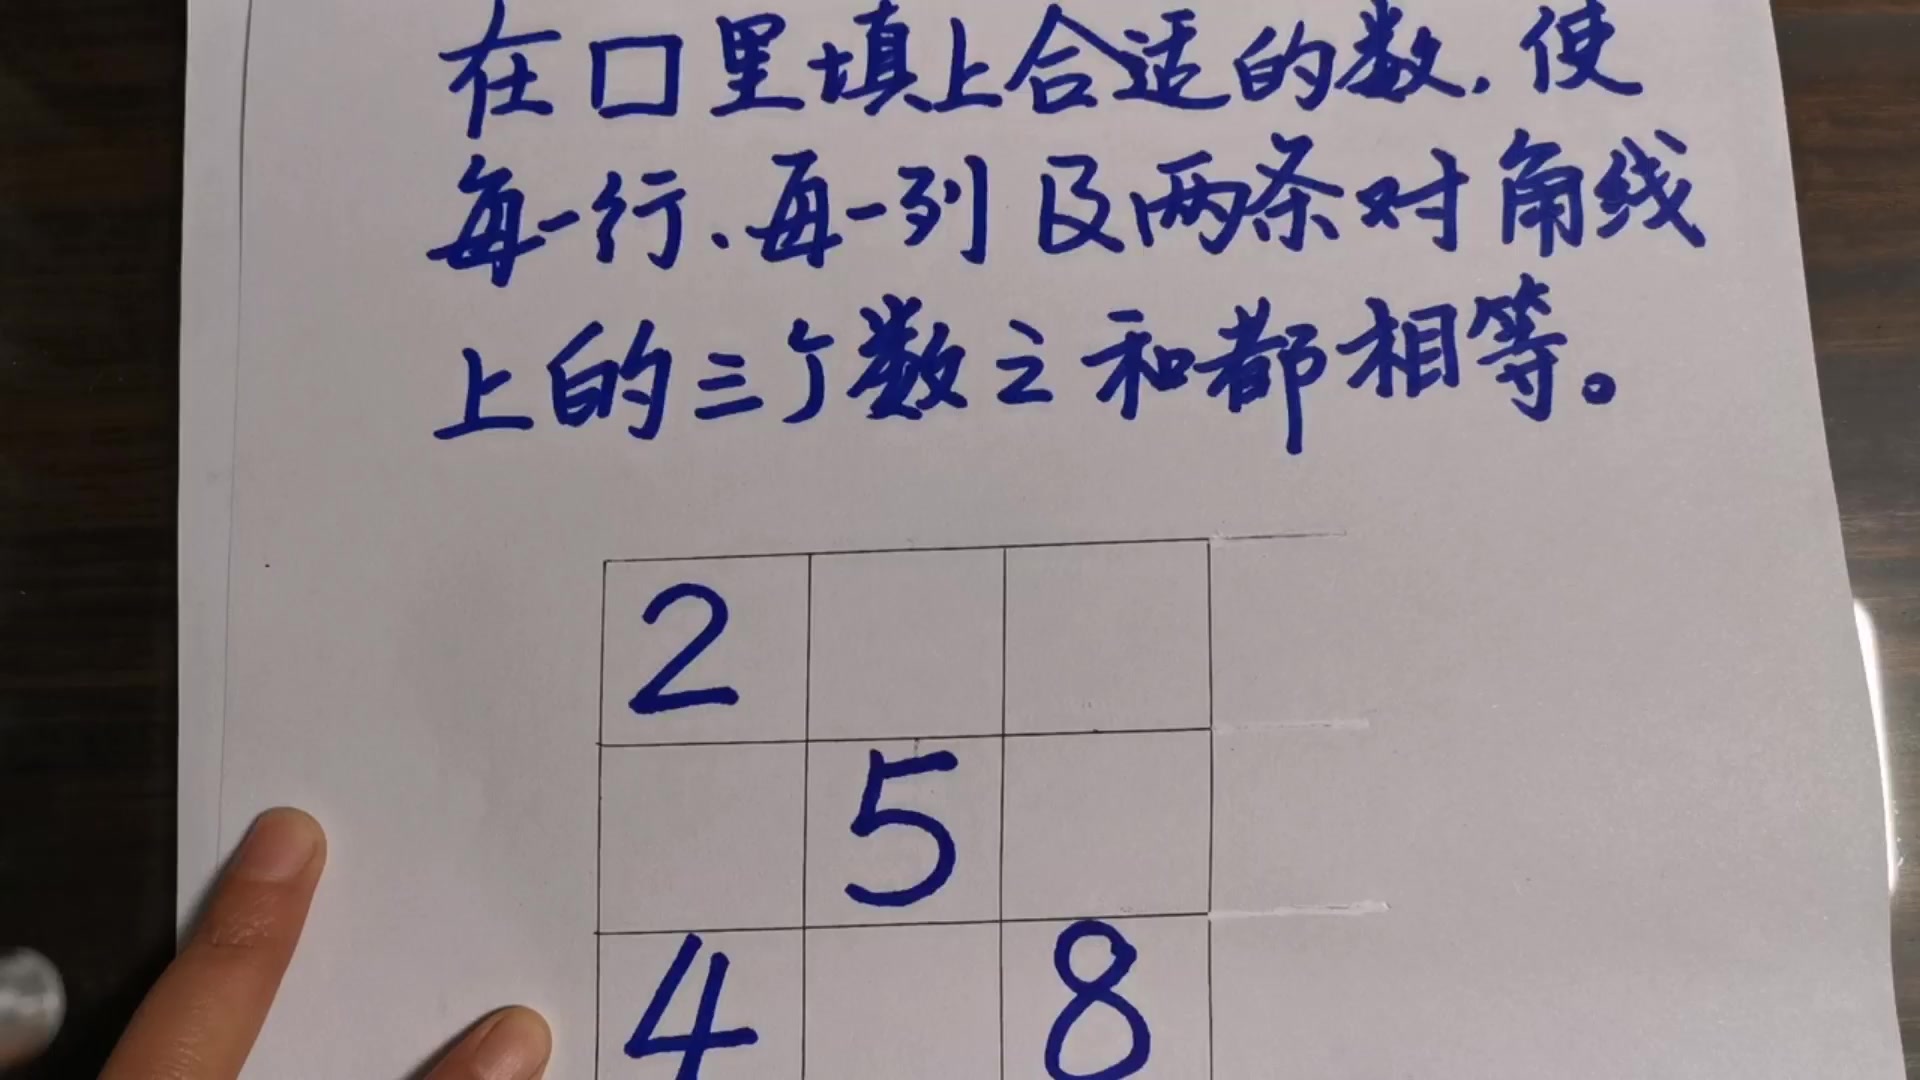 在口里填上合适的数，使
每一行、每一列及两条对角线
上的三个数之和都相等。
2
5
4 8